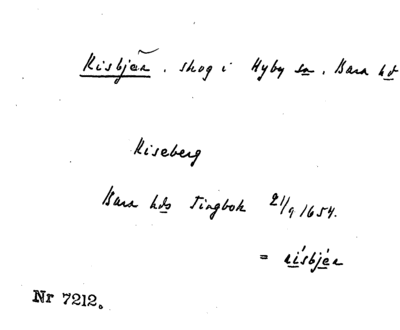 Risbjär . skog i Hyby sn . Bara hd
Riseberg
Bara hds Tingbok 21/9 1654.
= rísbjér
Nr 7212.